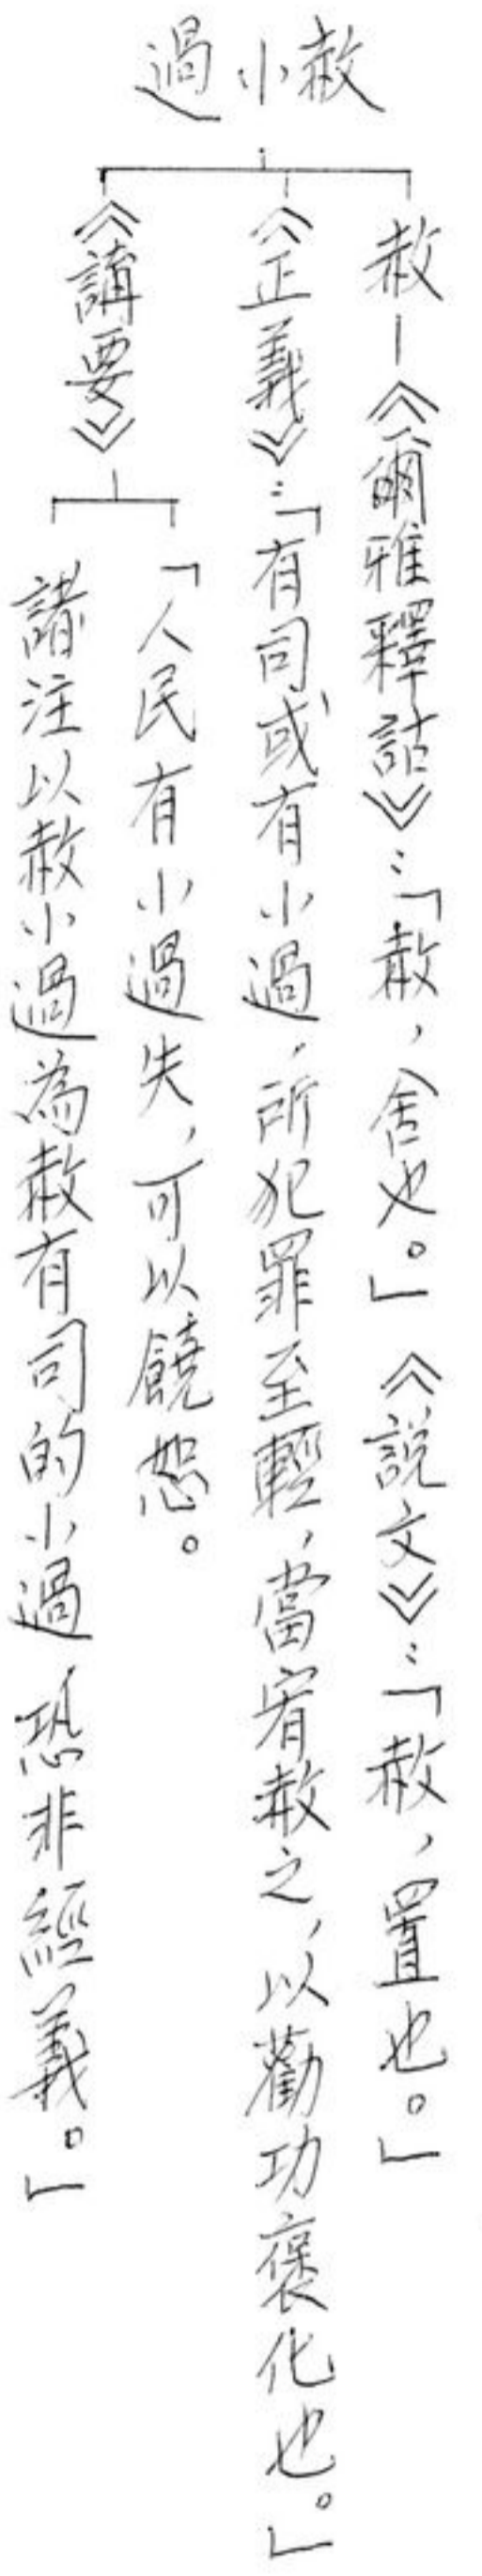 赦小過
赦—《爾雅釋詁》:「赦,舍也。」《說文》:「赦,置也。」
《正義》:「有司或有小過,所犯罪至輕,當宥赦之,以勸功褒化也。」
《講要》
「人民有小過失,可以饒恕。
諸注以赦小過為赦有司的小過,恐非經義。」